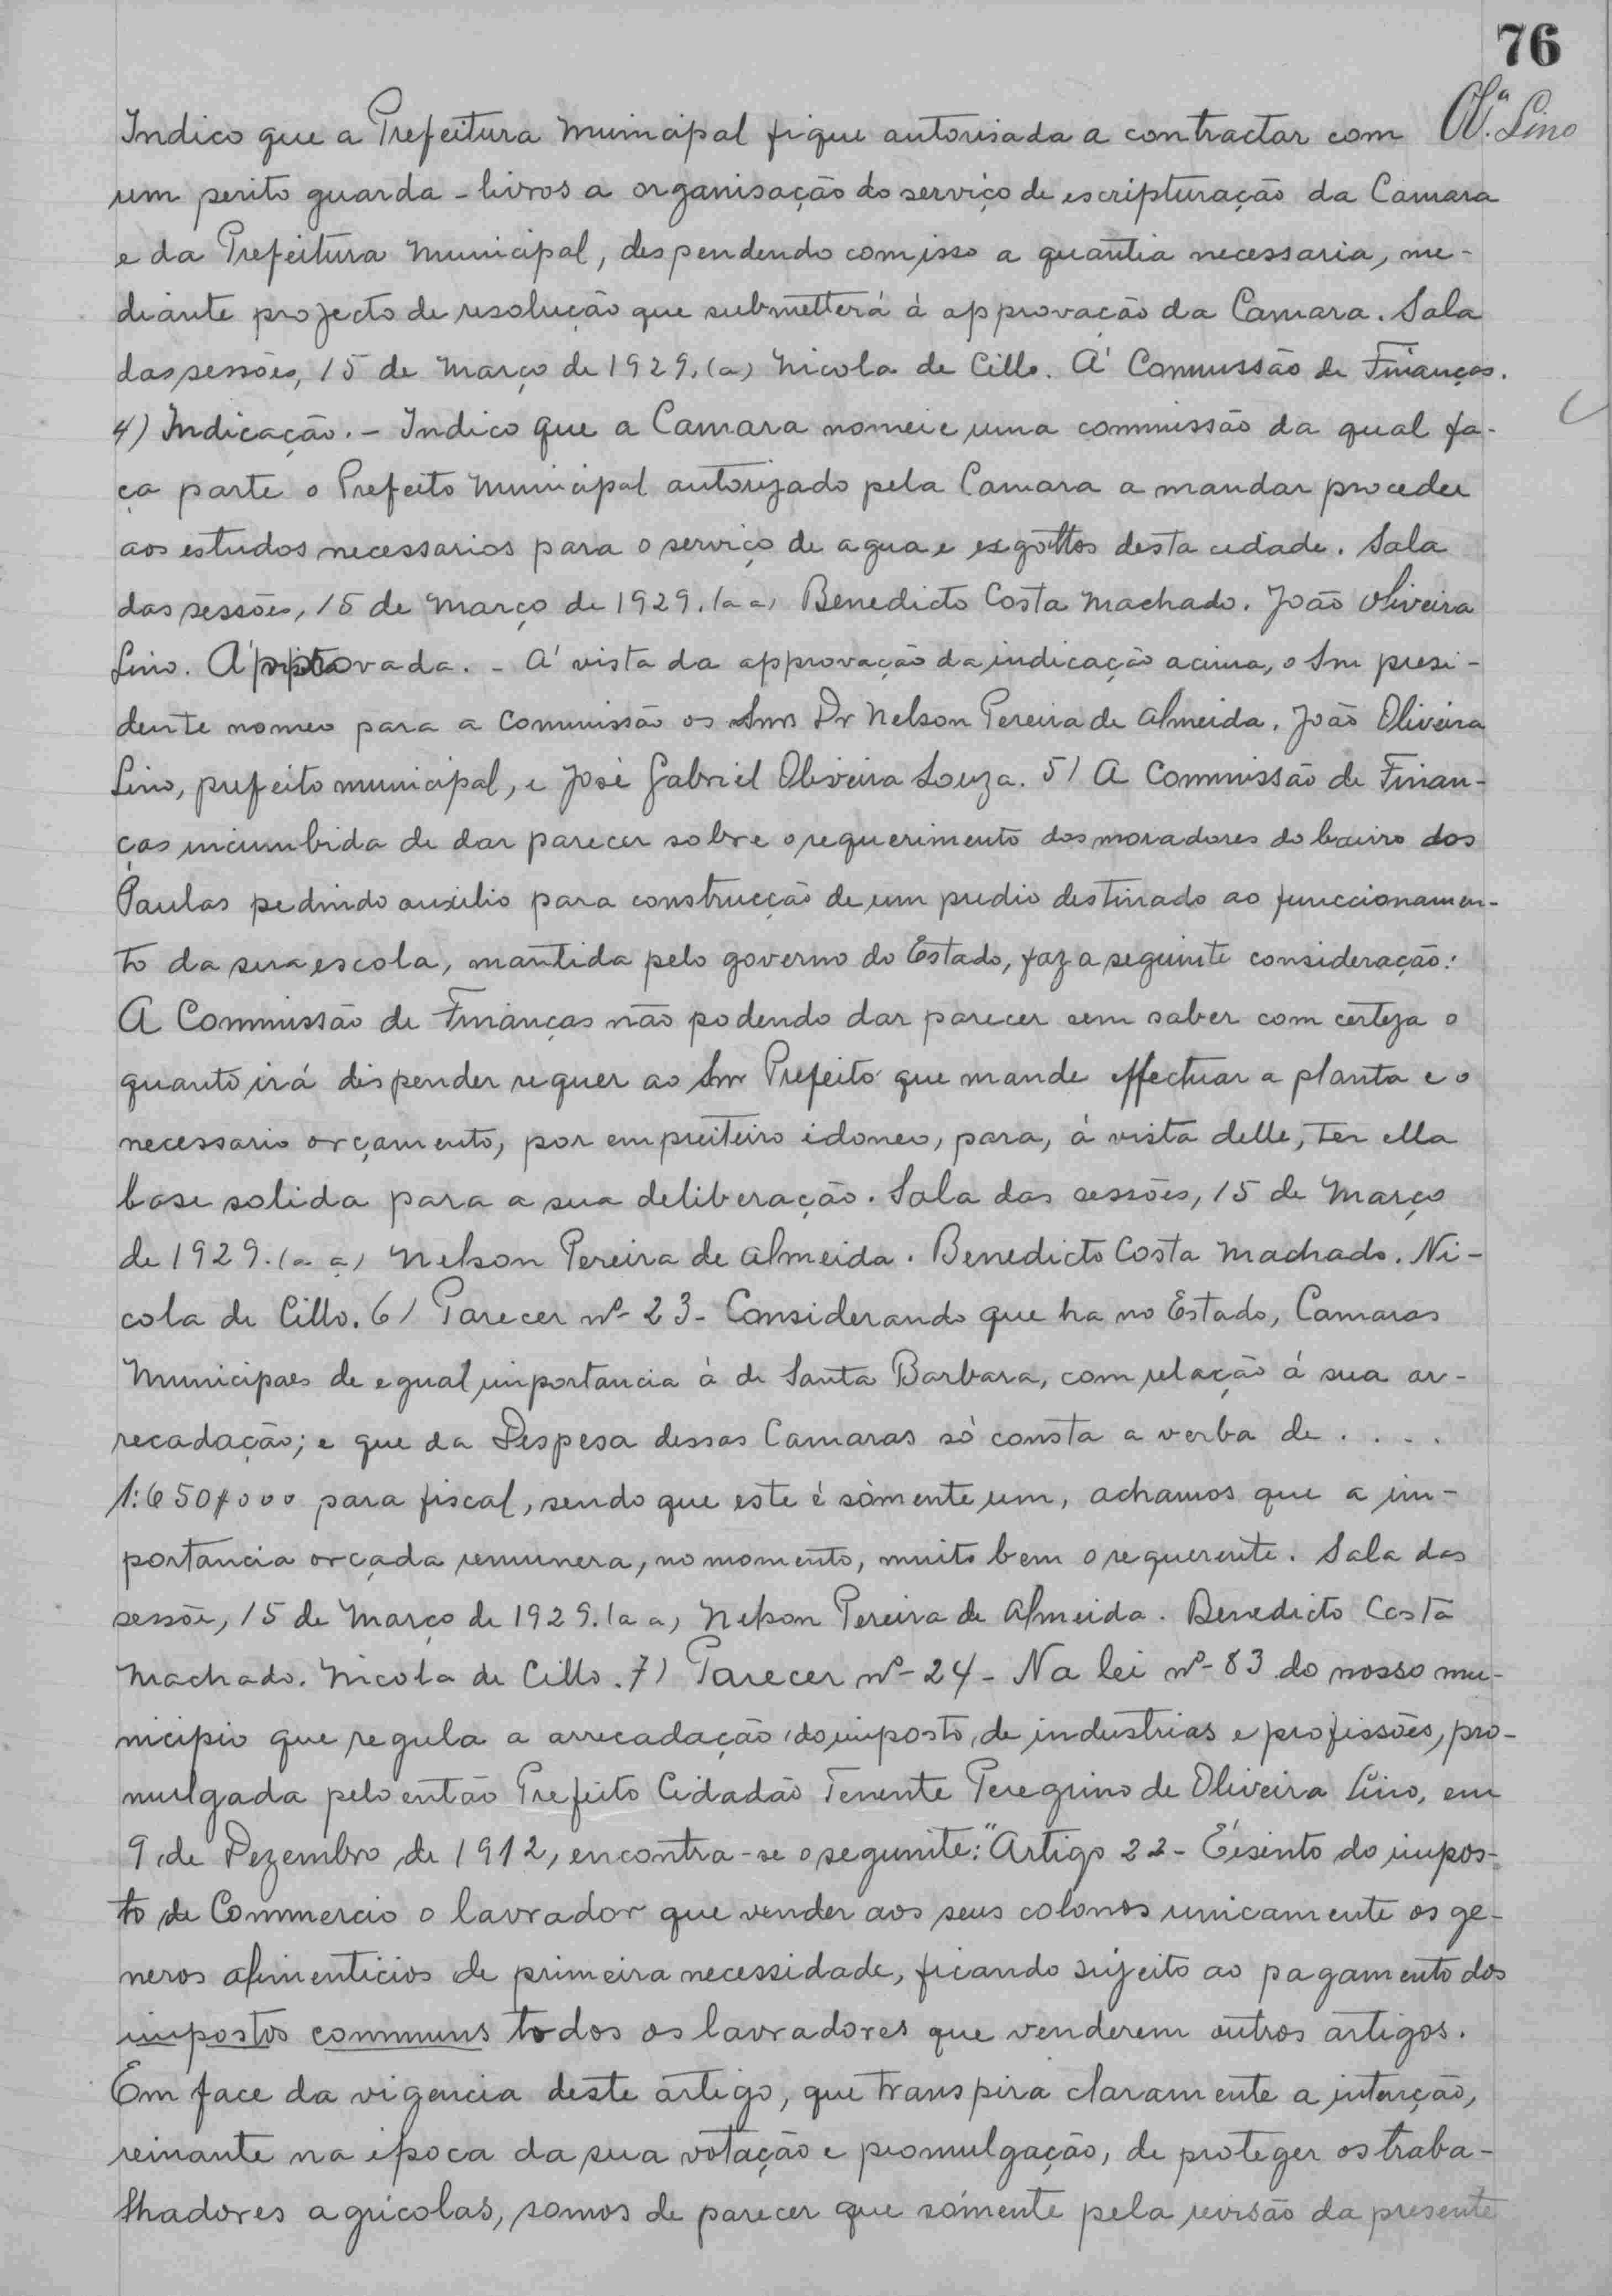 76
Ol.ª Lino
Indico que a Prefeitura Municipal fique autorisada a contractar com
um perito guarda-livros a organisação do serviço de escripturação da Camara
e da Prefeitura Municipal, despendendo com isso a quantia necessaria, me-
diante projecto de resolução que submetterá á approvação da Camara. Sala
das sessões, 15 de Março de 1929. (a) Nicola de Cillo. Á Commissão de Finanças.
4) Indicação. - Indico que a Camara nomeie uma commissão da qual fa-
ça parte o Prefeito Municipal autorizado pela Camara a mandar proceder
aos estudos necessarios para o serviço de agua e exgottos desta cidade. Sala
das sessões, 15 de Março de 1929. (a a) Benedicto Costa Machado. João Oliveira
Lino. Approvada. - Á vista da approvação da indicação acima, o Snr presi-
dente nomeo para a Commissão os Snrs Dr Nelson Pereira de Almeida, João Oliveira
Lino, prefeito municipal, e José Gabriel Oliveira Souza. 5) A Commissão de Finan-
ças incumbida de dar parecer sobre o requerimento dos moradores do bairro dos
Paulas pedindo auxilio para construcção de um predio destinado ao funccionamen-
to da sua escola, mantida pelo governo do Estado, faz a seguinte consideração:
A Commissão de Finanças não podendo dar parecer sem saber com certeza o
quanto irá dispender requer ao Snr Prefeito que mande effectuar a planta e o
necessario orçamento, por empreiteiro idoneo, para, á vista delle, ter ella
base solida para a sua deliberação. Sala das sessões, 15 de Março
de 1929. (a a) Nelson Pereira de Almeida. Benedicto Costa Machado. Ni-
cola de Cillo. 6) Parecer nº 23 - Considerando que ha no Estado, Camaras
Municipaes de egual importancia à de Santa Barbara, com relação á sua ar-
recadação; e que da Despesa dessas Camaras só consta a verba de . . . .
1:650$000 para fiscal, sendo que este é sómente um, achamos que a im-
portancia orçada remunera, no momento, muito bem o requerente. Sala das
sessõe, 15 de Março de 1929. (a a) Nelson Pereira de Almeida. Benedicto Costa
Machado. Nicola de Cillo. 7) Parecer nº 24 - Na lei nº 83 do nosso mu-
nicipio que regula a arrecadação do imposto de industrias e profissões, pro-
mulgada pelo então Prefeito Cidadão Tenente Peregrino de Oliveira Lino, em
9 de Dezembro de 1912, encontra-se o seguinte: "Artigo 22 - É isento do impos-
to de Commercio o lavrador que vender aos seus colonos unicamente os ge-
neros alimenticios de primeira necessidade, ficando sujeito ao pagamento dos
impostos communs todos os lavradores que venderem outros artigos.
Em face da vigencia deste artigo, que transpira claramente a intenção,
reinante na época da sua votação e promulgação, de proteger os traba-
lhadores agricolas, somos de parecer que sómente pela revisão da presente